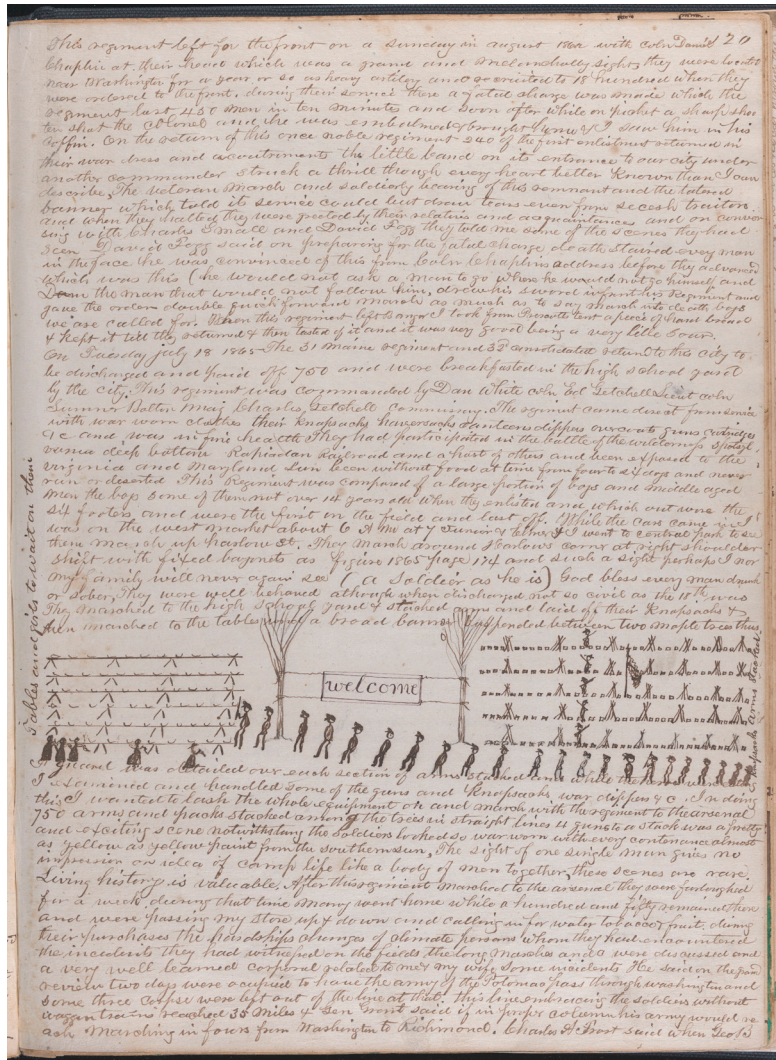 This regiment left for the front on a sunday in august 1862 with coln Daniel 120
Chaplin at their head which was a grand and melancholly sight, they were located
near Washington for a year or so as heavy artilery and recruited to 18 hundred when they
were ordered to the front, during their service there a fatal charge was made which the
regiment lost 450 men in ten minutes and soon after while on picket a sharp shoo
ter shot the colonel and he was embalmed & brought home & I saw him in his
coffin. On the return of this once noble regiment 240 of the first enlistment returned in
their war dress and accoutrements the little band on its entrance to our city under
another commander struck a thrill through every heart better known than I can
describe, The veteran march and soldierly bearing of this remnant and the tattered
banner which told its service could but draw tears even from secesh traitors,
and when they halted they were greeted by their relatives and acquaintances and on conver
sing with Charles Small and David Fogg they told me some of the scenes they had
seen David Fogg said on preparing for the fatal charge death stared every man
in the face he was convinced of this from coln Chaplins address before they advanced
which was this (he would not ask a man to go where he would not go himself and
Damn the man that would not follow him, drew his sword in front his Regiment and
gave the order double quick forward march as much as to say march into death boys
we are called for. When this regiment left Bangor I took from a piece of hard bread
& kept it till they returned & then tasted of it and it was very good being a very little sour.
On Tuesday July 18 1865 The 31 Maine regiment and 32 consolidated returnd to this city to
be discharged and paid off 750 and were breakfasted in the high school yard
by the city. This regiment was commanded by Dan White coln Ed Getchell Lieut coln
Sumner Bolton Maj Charles Getchell Commissary. The regiment came direct from service
with war worn clothes their Knapsacks haversacks canteens dippers overcoats guns cartridges
&c and was in fine health They had participated in the battle of the wilderness Spotsyl
vania deep bottom Rapiadan Railroad and a host of others and been exposed to the
virginia and Maryland Sun been without food at time from four to six days and never
run or deserted This Regiment was composed of a large portion of boys and middle aged
men the boys some of them not over 14 years old when they enlisted and which out wore the
six footers and were the first in the field and last off. While the cars came in I
was on the west market about 6 A M at 7 Junior & Elmer & I went to central park to see
them march up harlow St. They march around Harlows corner at right shoulder
shift with fixed bayonets as figure 1865 page 174 and such a sight perhaps I nor
my family will never again see (a Soldier as he is) God bless every man drunk
or sober, They were well behaved although when discharged not so civil as the 18th was
They marched to the high school yard & stacked arms and laid of their Knapsacks &
then marched to the tables and a broad banner suspended between two maple trees thus
Tables and girls to wait on them
welcome
Knapsacks arms stacked
A guard was detailed over each section of arms stacked and while
I examined and handled some of the guns and Knapsacks war dippers &c. In doing
this I wanted to lash the whole equipment on and march with the regement to the arsenal
750 arms and packs stacked among the trees in straight lines 4 guns to a stack was a pretty
and exciting scene notwithstang the soldiers looked so war worn with every contenance almost
as yellow as yellow paint from the southern sun, The sight of one single man gives no
impression or idea of camp life like a body of men together, these scenes are rare.
Living history is valuable. After this regiment marched to the arsenal they were furloughed
for a week during that time many went home while a hundred and fifty remained here
and were passing my store up & down and calling in for water tobacco fruit, during
their purchases the hardships changes of climate persons whom they had encountered
the incidents they had witnessed on the fields the long marches and &c were discussed and
a very well learned corporal related to me & my wife some incidents He said on the grand
review two days were ocupied to have the army of the Potomac pass through washington and
some three corpse were left out of the line at that. this line embracing the soldiers without
waggon trains reached 35 Miles & Gen Grant said if in proper column his army would re
ach marching in fours from Washington to Richmond. Charles A Frost said when Geo B